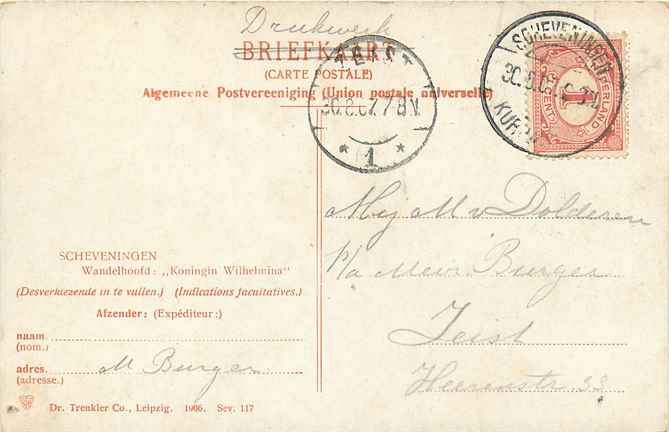 Drukwerk
BRIEFKAART
(CARTE POSTALE)
Algemeene Postvereeniging (Union postale universelle)
ZEIST
30.8.07. 7-8 V.
1
SCHEVENINGEN
KURH
NEDERLAND
1
CENT
Mej M v Dolderen
p/a Mevr Burger
Zeist
Heerenstr 22
SCHEVENINGEN
Wandelhoofd: „Koningin Wilhelmina"
(Desverkiezende in te vullen.) (Indications facultatives.)
Afzender: (Expéditeur:)
naam
(nom.)
adres. M Burger
(adresse.)
Dr. Trenkler Co., Leipzig. 1906. Sev. 117